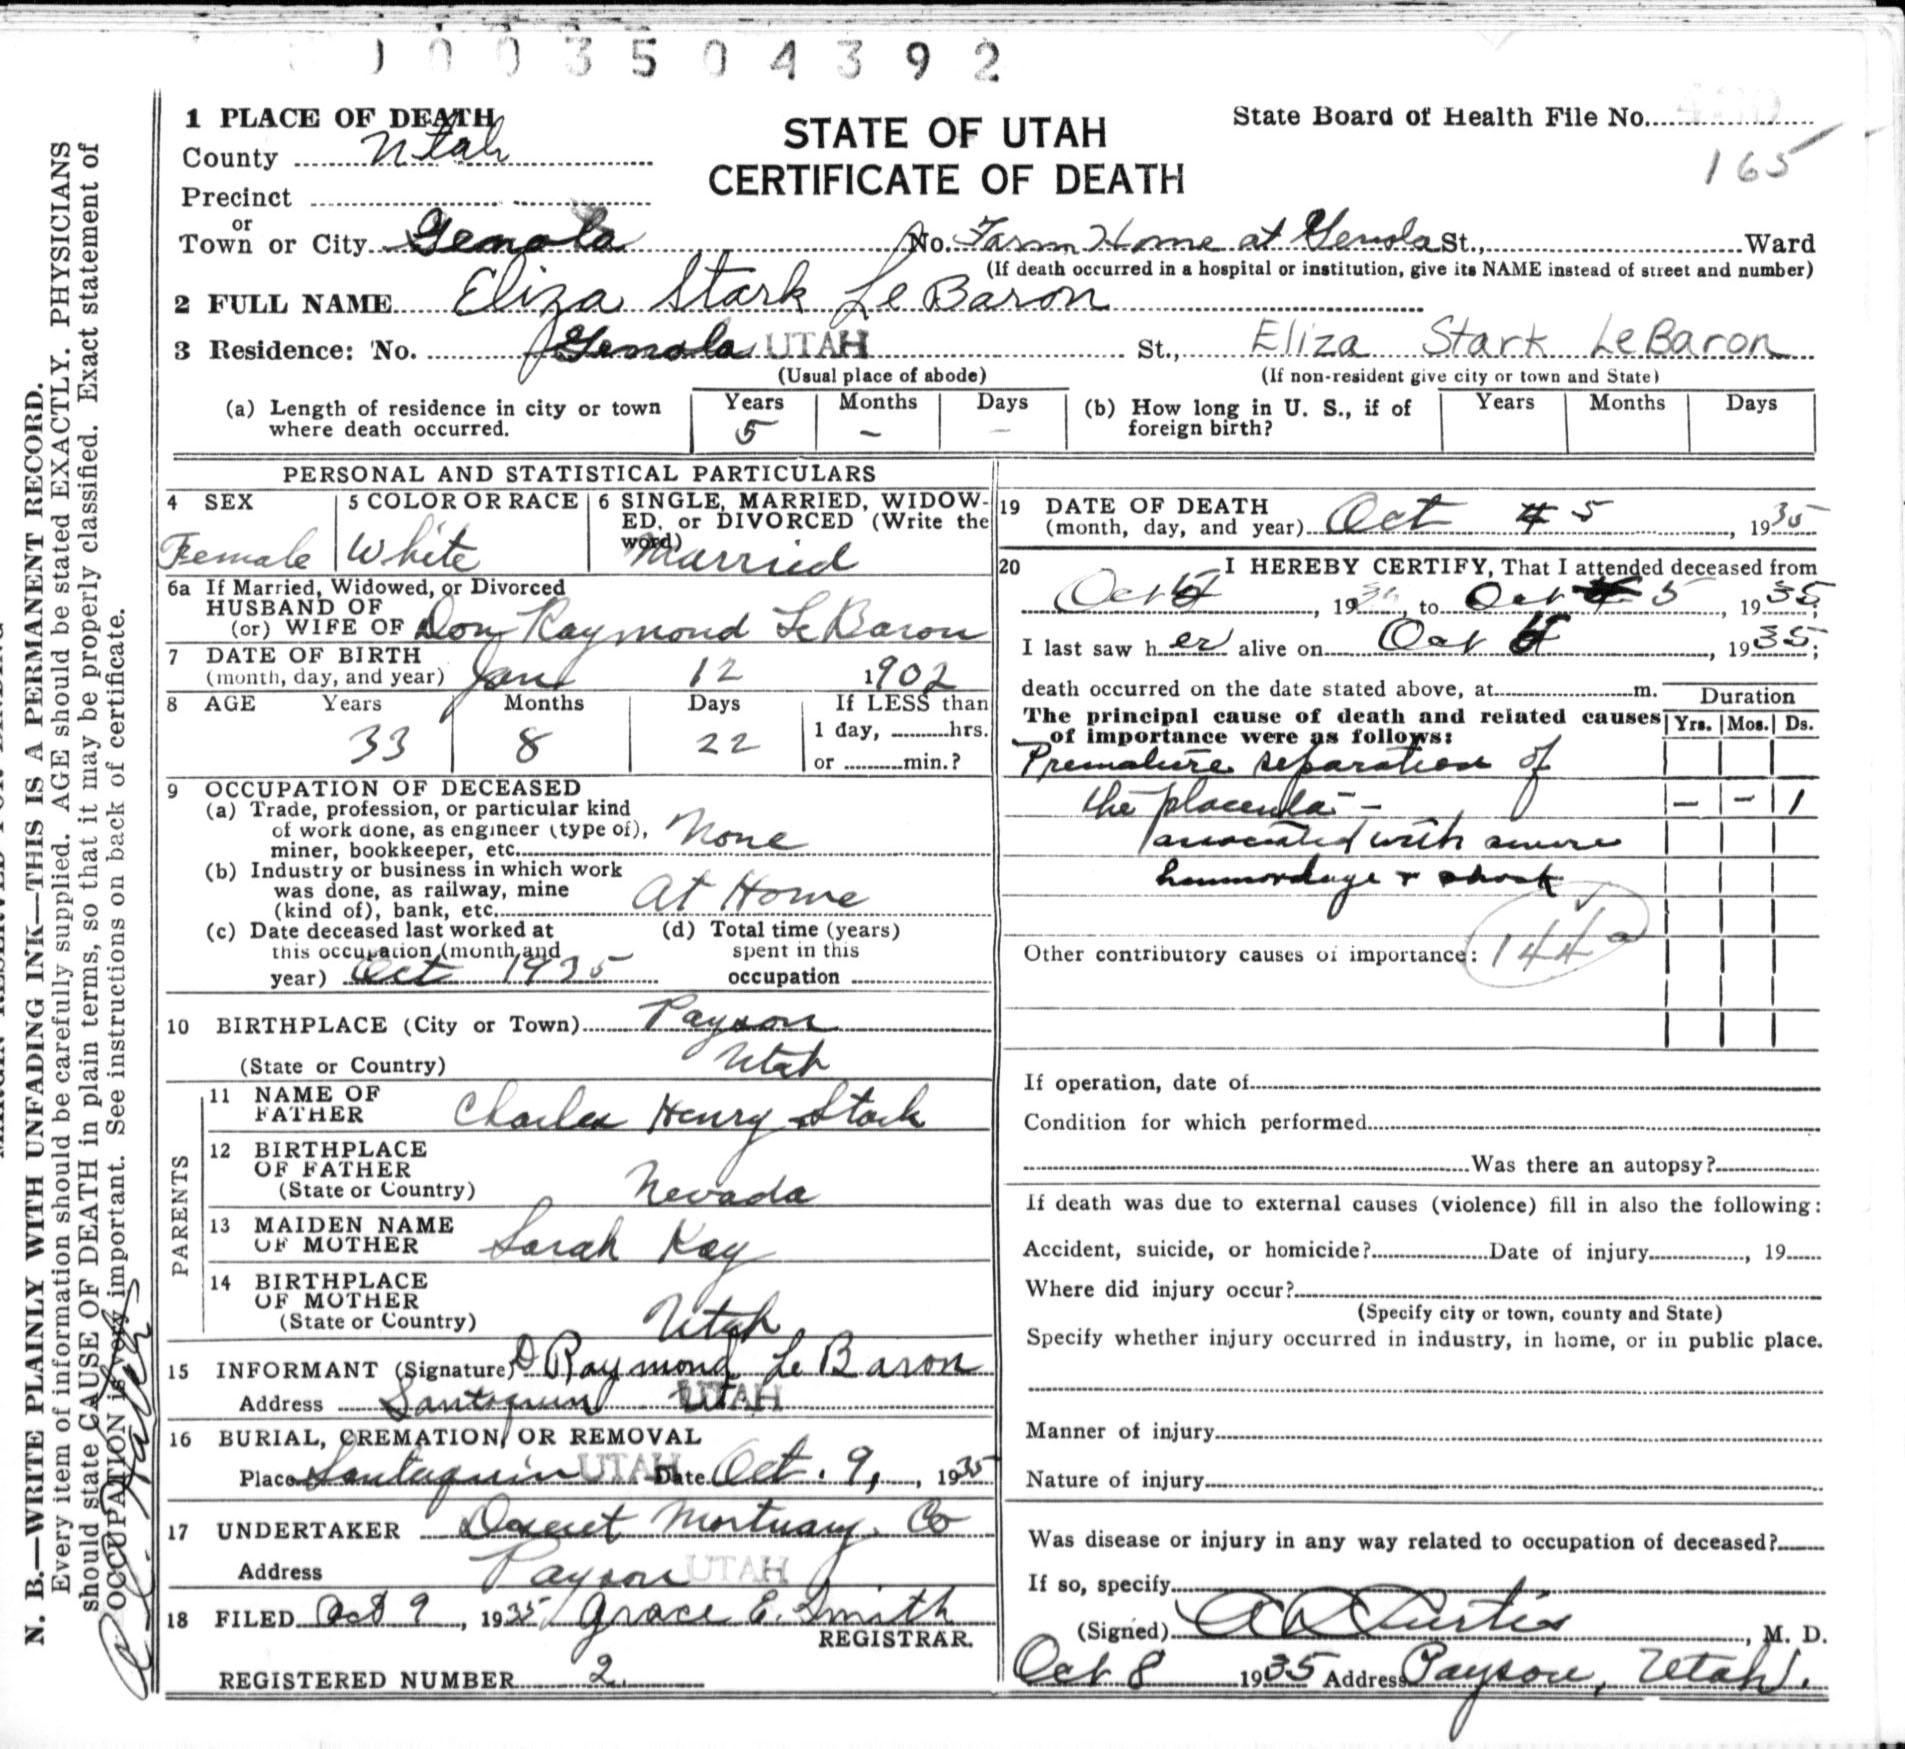 1003504392
1 PLACE OF DEATH
County Utah
Precinct
or
Town or City Genola No. Farm Home at Genola St., Ward
(If death occurred in a hospital or institution, give its NAME instead of street and number)
2 FULL NAME Eliza Stark Le Baron
3 Residence: No. Genola UTAH St., Eliza Stark LeBaron
(Usual place of abode) (If non-resident give city or town and State)
STATE OF UTAH
CERTIFICATE OF DEATH
State Board of Health File No.
165
(a) Length of residence in city or town where death occurred. Years 5 Months – Days –
(b) How long in U. S., if of foreign birth? Years Months Days
PERSONAL AND STATISTICAL PARTICULARS
4 SEX
Female
5 COLOR OR RACE
White
6 SINGLE, MARRIED, WIDOW-
ED, or DIVORCED (Write the
word)
Married
6a If Married, Widowed, or Divorced
HUSBAND OF
(or) WIFE OF Don Raymond Le Baron
7 DATE OF BIRTH
(month, day, and year) Jan 12 1902
8 AGE Years Months Days If LESS than
33 8 22 1 day, hrs.
or min.?
9 OCCUPATION OF DECEASED
(a) Trade, profession, or particular kind
of work done, as engineer (type of),
miner, bookkeeper, etc. None
(b) Industry or business in which work
was done, as railway, mine
(kind of), bank, etc. At Home
(c) Date deceased last worked at
this occupation (month and
year) Oct 1935
(d) Total time (years)
spent in this
occupation
10 BIRTHPLACE (City or Town) Payson
(State or Country) Utah
PARENTS
11 NAME OF
FATHER Charles Henry Stark
12 BIRTHPLACE
OF FATHER
(State or Country) Nevada
13 MAIDEN NAME
OF MOTHER Sarah Kay
14 BIRTHPLACE
OF MOTHER
(State or Country) Utah
15 INFORMANT (Signature) D Raymond Le Baron
Address Santaquin UTAH
16 BURIAL, CREMATION, OR REMOVAL
Place Santaquin UTAH Date Oct. 9, 1935
17 UNDERTAKER Deseret Mortuary Co
Address Payson UTAH
18 FILED Oct 9, 1935 Grace E. Smith
REGISTRAR.
REGISTERED NUMBER 2
19 DATE OF DEATH
(month, day, and year) Oct 5, 1935
20 I HEREBY CERTIFY, That I attended deceased from
Oct, 19 to Oct 5, 1935;
I last saw her alive on Oct, 1935;
death occurred on the date stated above, at m.
Duration
Yrs. Mos. Ds.
The principal cause of death and related causes
of importance were as follows:
Premature separation of
the placenta – – – 1
associated with severe
hemmorhage + shock
144a
Other contributory causes of importance:
If operation, date of
Condition for which performed
Was there an autopsy?
If death was due to external causes (violence) fill in also the following:
Accident, suicide, or homicide? Date of injury, 19
Where did injury occur?
(Specify city or town, county and State)
Specify whether injury occurred in industry, in home, or in public place.
Manner of injury
Nature of injury
Was disease or injury in any way related to occupation of deceased?
If so, specify
(Signed) Curtis, M. D.
Oct 8 1935 Address Payson, Utah.
N. B.—WRITE PLAINLY WITH UNFADING INK—THIS IS A PERMANENT RECORD.
Every item of information should be carefully supplied. AGE should be stated EXACTLY. PHYSICIANS
should state CAUSE OF DEATH in plain terms, so that it may be properly classified. Exact statement of
OCCUPATION is very important. See instructions on back of certificate.